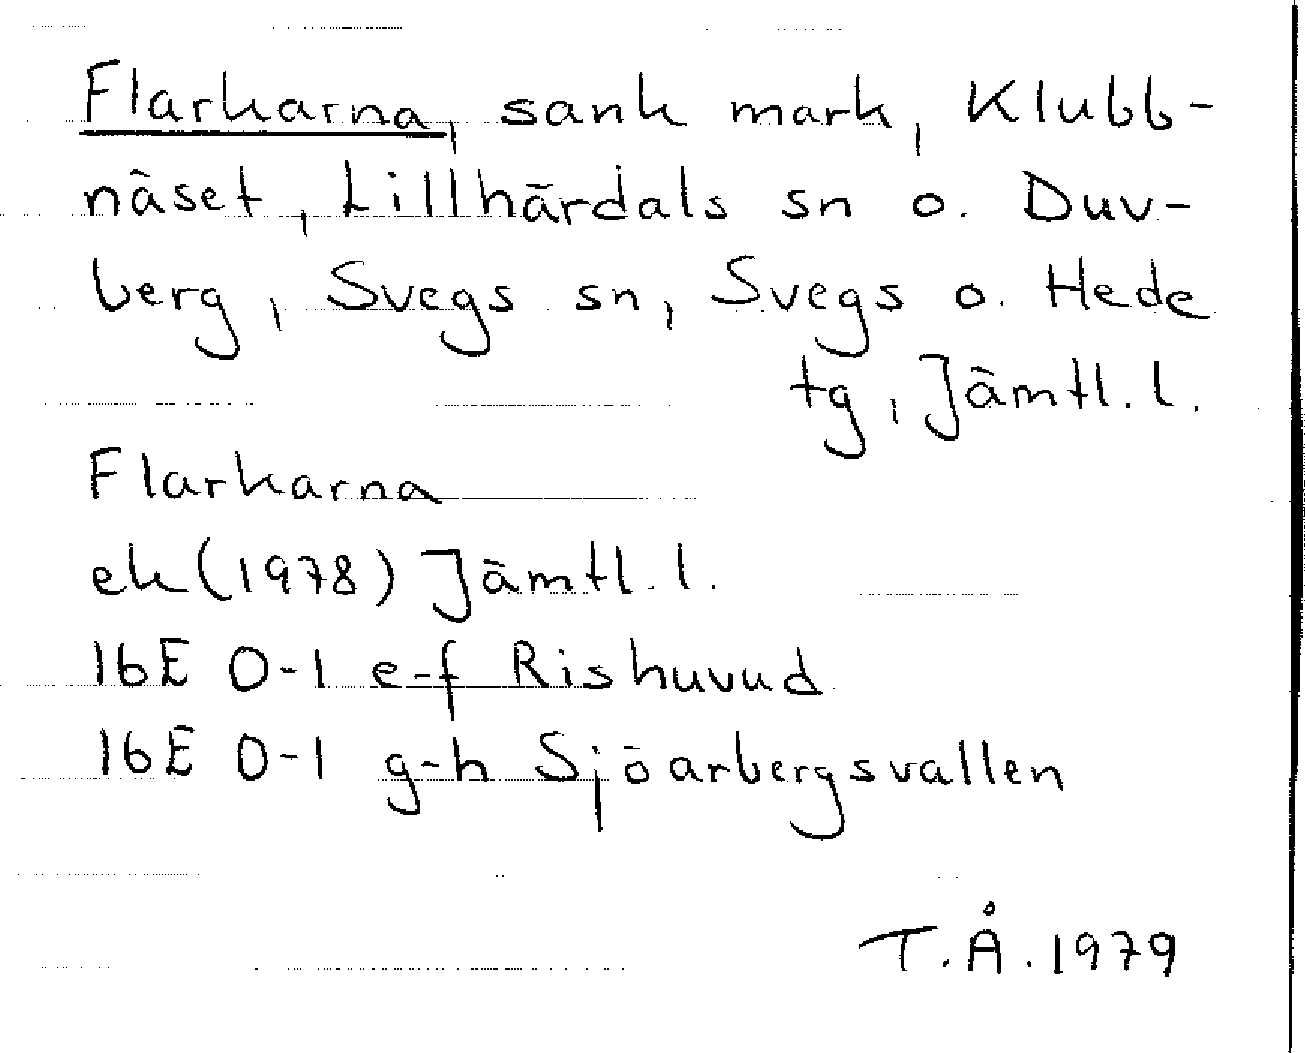 Flarkarna, sank mark, Klubb-
näset, Lillhärdals sn o. Duv-
berg, Svegs sn, Svegs o. Hede
tg, Jämtl. l.
Flarkarna
ek (1978) Jämtl. l.
16E 0-1 e-f Rishuvud
16E 0-1 g-h Sjöarbergsvallen
T.Å. 1979